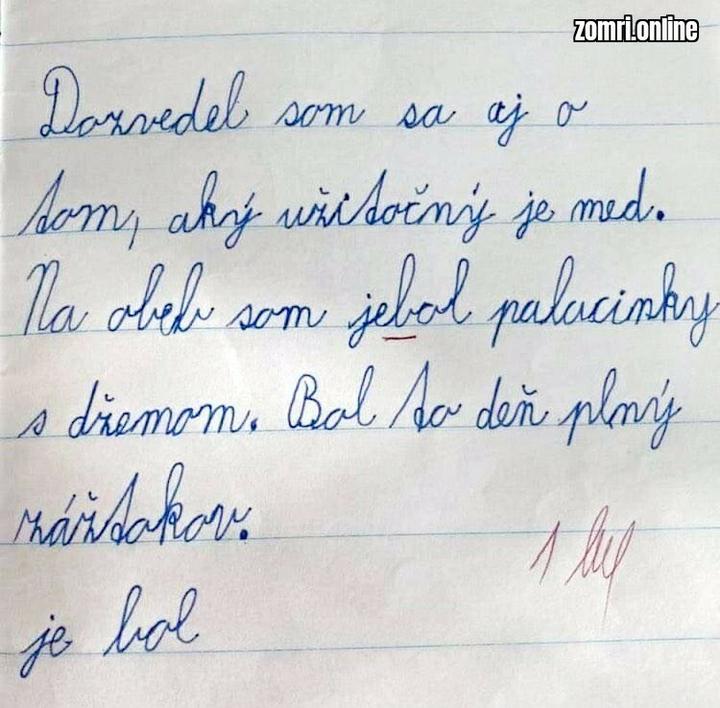 zomri.online
Dozvedel som sa aj o
tom, aký užitočný je med.
Na obed som jebol palacinky
s džemom. Bol to deň plný
zážtokov.
1
je bol